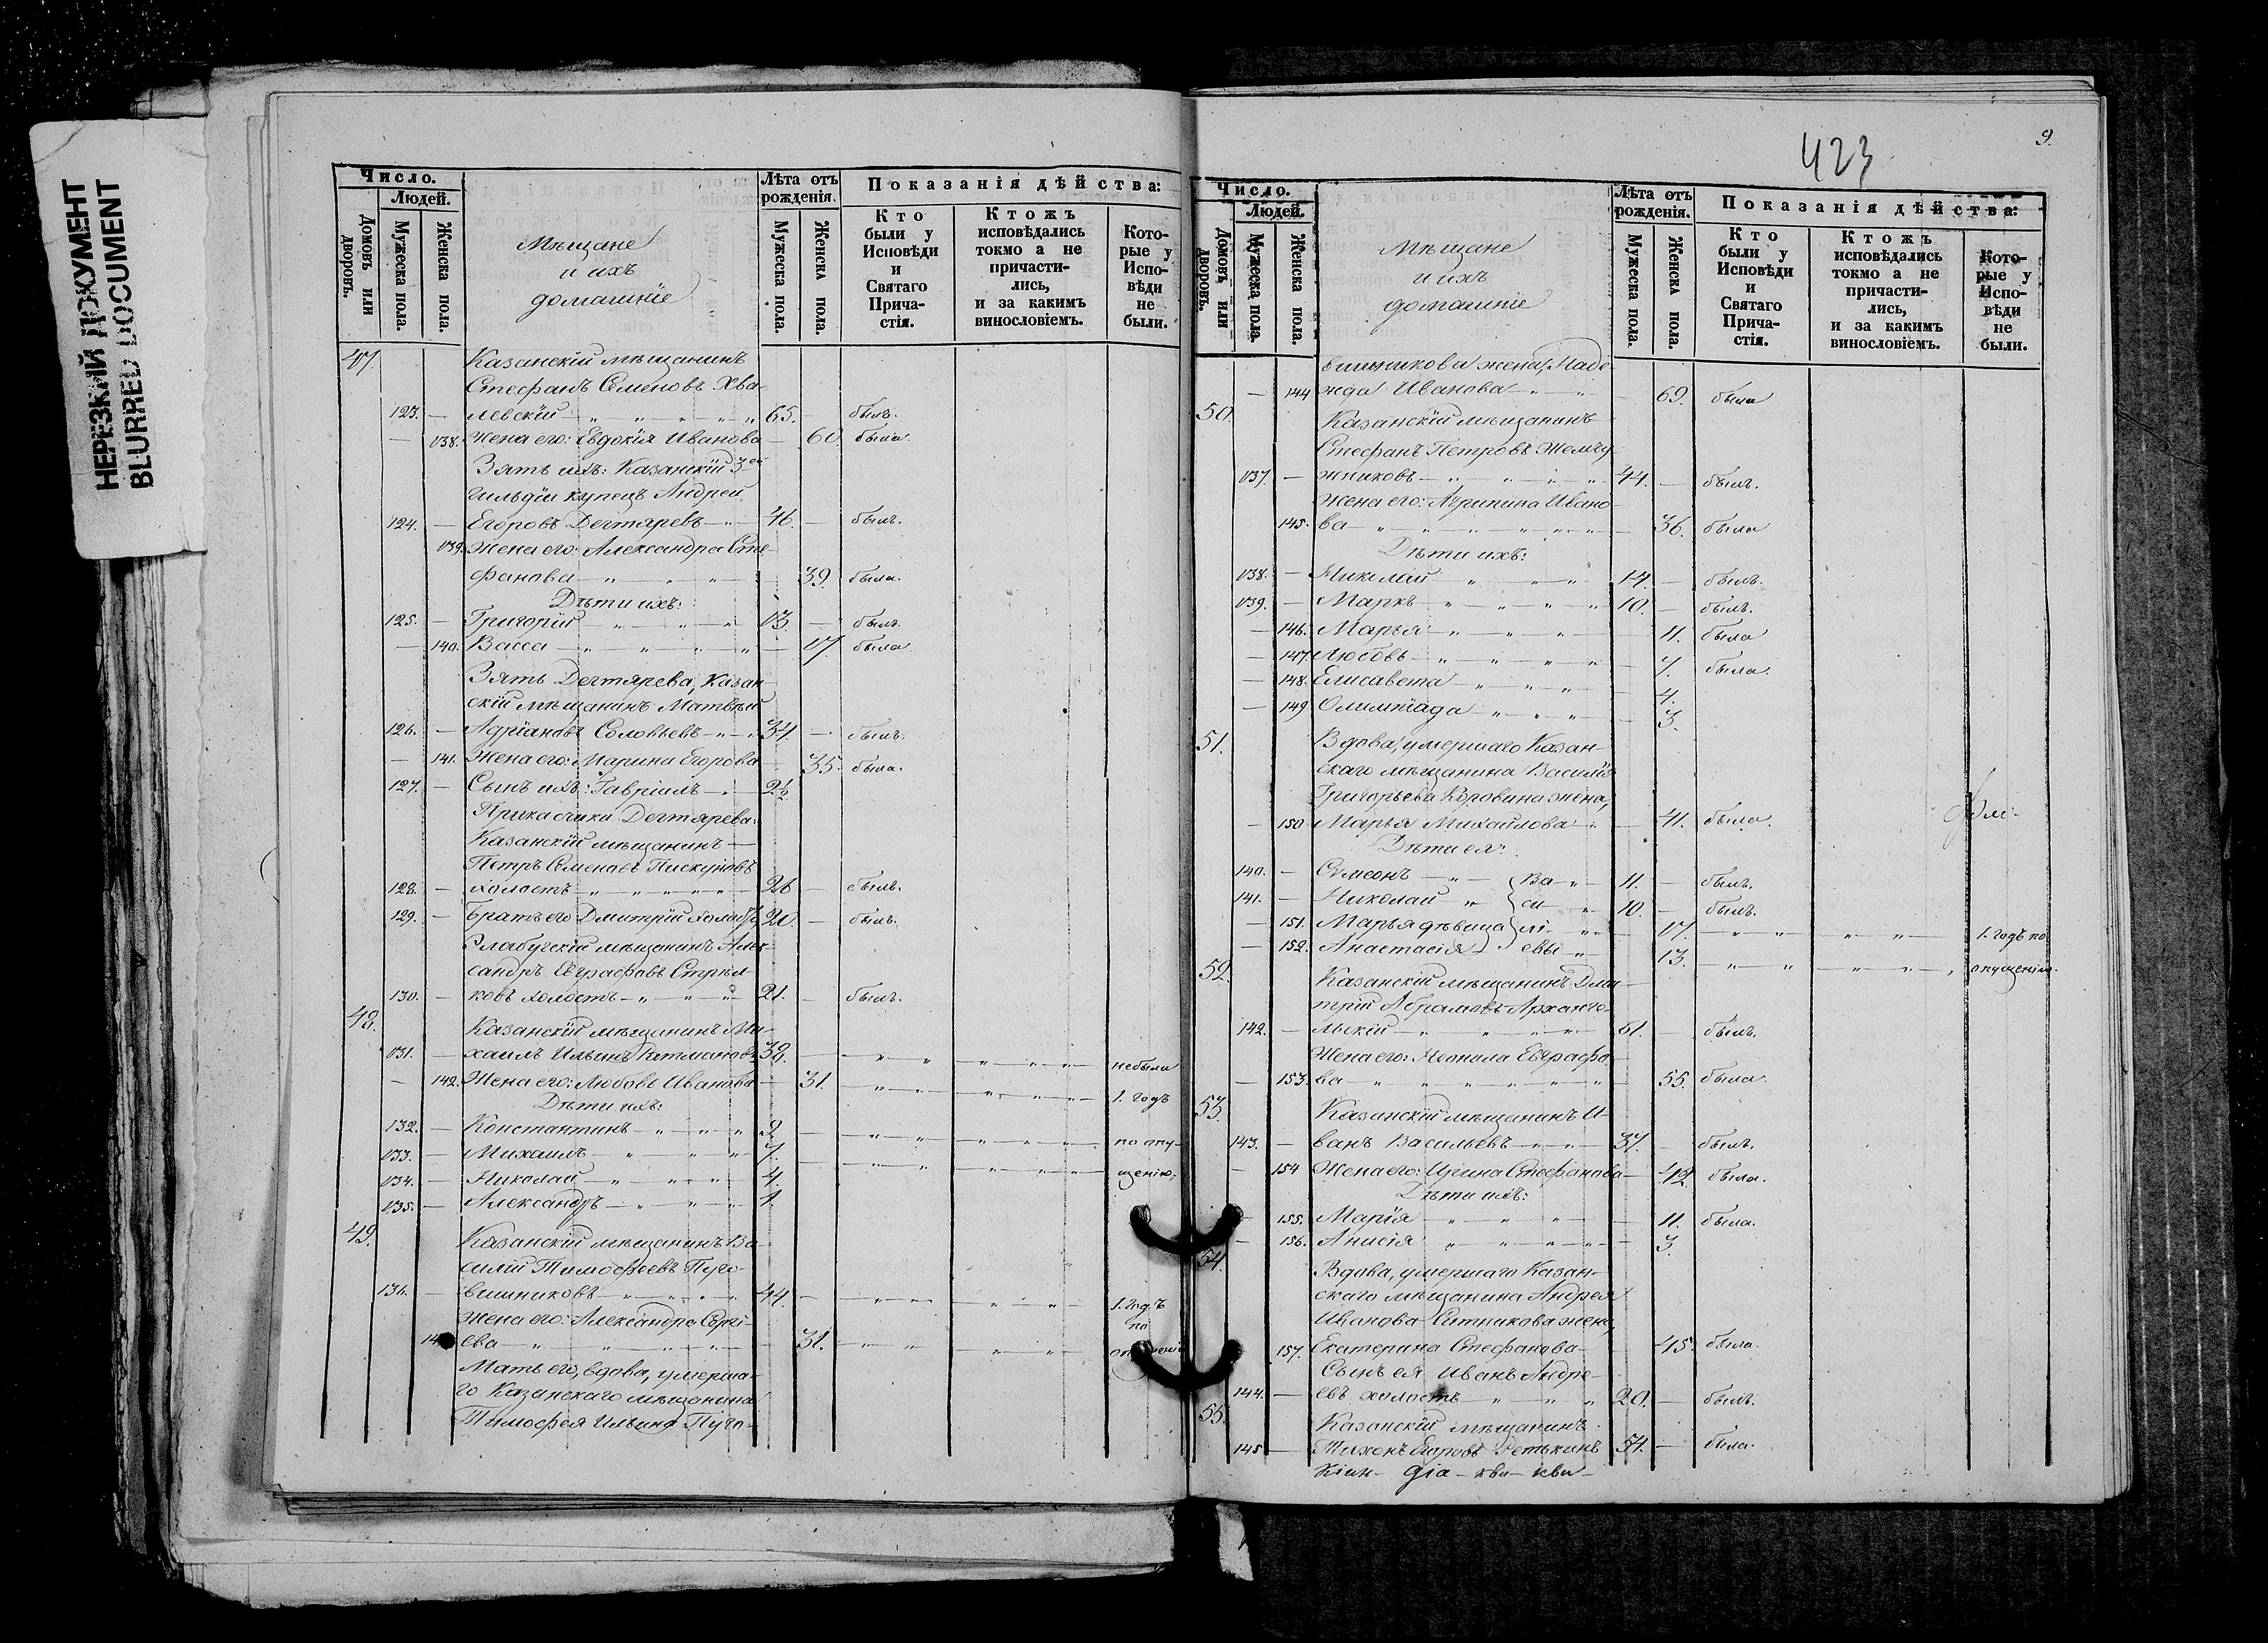 НЕРЕЗКИЙ ДОКУМЕНТ
BLURRED DOCUMENT
Число.
Людей.
Домовъ или дворовъ.
Мужеска пола.
Женска пола.
Мѣщане
и ихъ
домашніе
Лѣта отъ рожденія.
Мужеска пола.
Женска пола.
Показанія дѣйства:
Кто были у Исповѣди и Святаго Причастія.
Ктожъ исповѣдались токмо а не причастились, и за какимъ винословіемъ.
Которые у Исповѣди не были.
47. Казанскій мѣщанинъ
Стефанъ Семеновъ Хва-
123. — левскій — " — " — " 65. — былъ.
— 138. Жена его: Евдокія Иванова — 60. была.
Зять ихъ: Казанскій 3ей
гильдіи купецъ Андрей
124. — Егоровъ Дегтяревъ — " — 46. — былъ.
139. Жена его: Александра Сте-
фанова — " — " — 39. была.
Дѣти ихъ:
125. — Григорій — " — " — 13. — былъ.
— 140. Васса — " — " — " — 17. была.
Зять Дегтярева, Казан-
скій мѣщанинъ Матвѣй
126. — Адріановъ Соловьевъ — " — 34. — былъ.
— 141. Жена его: Марина Егорова — 35. была.
127. — Сынъ ихъ: Гавріилъ — " — 2½
Прикащики Дегтярева:
Казанскій мѣщанинъ —
Петръ Семеновъ Пискуновъ
128. — холостъ — " — " — " — 26 — былъ.
129. — Братъ его Дмитрій холостъ 20. — былъ.
Елабугскій мѣщанинъ Алек-
сандръ Евграфовъ Стрѣл-
130. — ковъ холостъ — " — " — 21. — былъ.
48. Казанскій мѣщанинъ Ми-
131. — хаилъ Ильинъ 38. — " — " — небыли
— 142. Жена его: Любовь Иванова — 31. — " — " — 1. годъ
Дѣти ихъ:
132. — Константинъ — " — " — 9. — " — " — по опу-
133. — Михаилъ — " — " — 7. — " — " — щенію.
134. — Николай — " — " — 4.
135. — Александръ — " — " — 1.
49. Казанскій мѣщанинъ Ва-
силій Тимофеевъ Пуго-
136. — вишниковъ — " — " — 44. — " — " — 1. годъ
по
Жена его: Александра Сергі-
14 ева — " — " — " — 31. — " — " —
Мать его, вдова, умерша-
го Казанскаго мѣщанина
Тимофея Ильина Пуго-
423
9.
Число.
Людей.
Домовъ или дворовъ.
Мужеска пола.
Женска пола.
Мѣщане
и ихъ
домашніе
Лѣта отъ рожденія.
Мужеска пола.
Женска пола.
Показанія дѣйства:
Кто были у Исповѣди и Святаго Причастія.
Ктожъ исповѣдались токмо а не причастились, и за какимъ винословіемъ.
Которые у Исповѣди не были.
вишникова жена, Наде-
— 144 жда Иванова — " — " — 69. была
50. Казанскій мѣщанинъ
Стефанъ Петровъ Жемчу-
137. — жниковъ — " — " — " — 44. — былъ.
Жена его: Агрипина Ивано-
145. ва — " — " — " — " — 36. была
Дѣти ихъ:
138. — Николай — " — " — 14. — былъ.
139. — Маркъ — " — " — " 10. — былъ.
— 146. Марья — " — " — " — 11. была
— 147. Любовь — " — " — " — 7. была.
— 148. Елисавета — " — " — " — 4.
— 149 Олимпіада — " — " — " — 3.
51. Вдова, умершаго Казан-
скаго мѣщанина Василія
Григорьева Коровина жена,
— 150 Марья Михайлова — " — 41. была.
Дѣти ея:
140. — Сѵмеонъ — " — Ва — " — 11. — былъ.
141. — Николай " си " 10. — былъ.
— 151. Марья дѣвица лі — " — 17. — " — " — 1. годъ по
— 152. Анастасія евы " 13. — " — " — опущенію.
52. Казанскій мѣщанинъ Дми-
трій Абрамовъ Арханге-
142. — льскій — " — " — " 61. — былъ.
Жена его: Неонила Евграфо-
— 153. ва — " — " — " — " — 55. была.
53. Казанскій мѣщанинъ И-
143. — ванъ Васильевъ — " — 37. — былъ.
— 154 Жена его: Ирина Стефанова — 42. была.
Дѣти ихъ:
— 155. Марія — " — " — 11. была.
— 156. Анисія — " — " — " — 3.
54. Вдова, умершаго Казан-
скаго мѣщанина Андрея
Иванова Ситникова жена,
157. Екатерина Стефанова — 45. была.
Сынъ ея Иванъ Андре-
144. — евъ холостъ — " — " — 20. — былъ.
55. Казанскій мѣщанинъ
145 — Тихонъ Егоровъ 51. — была.